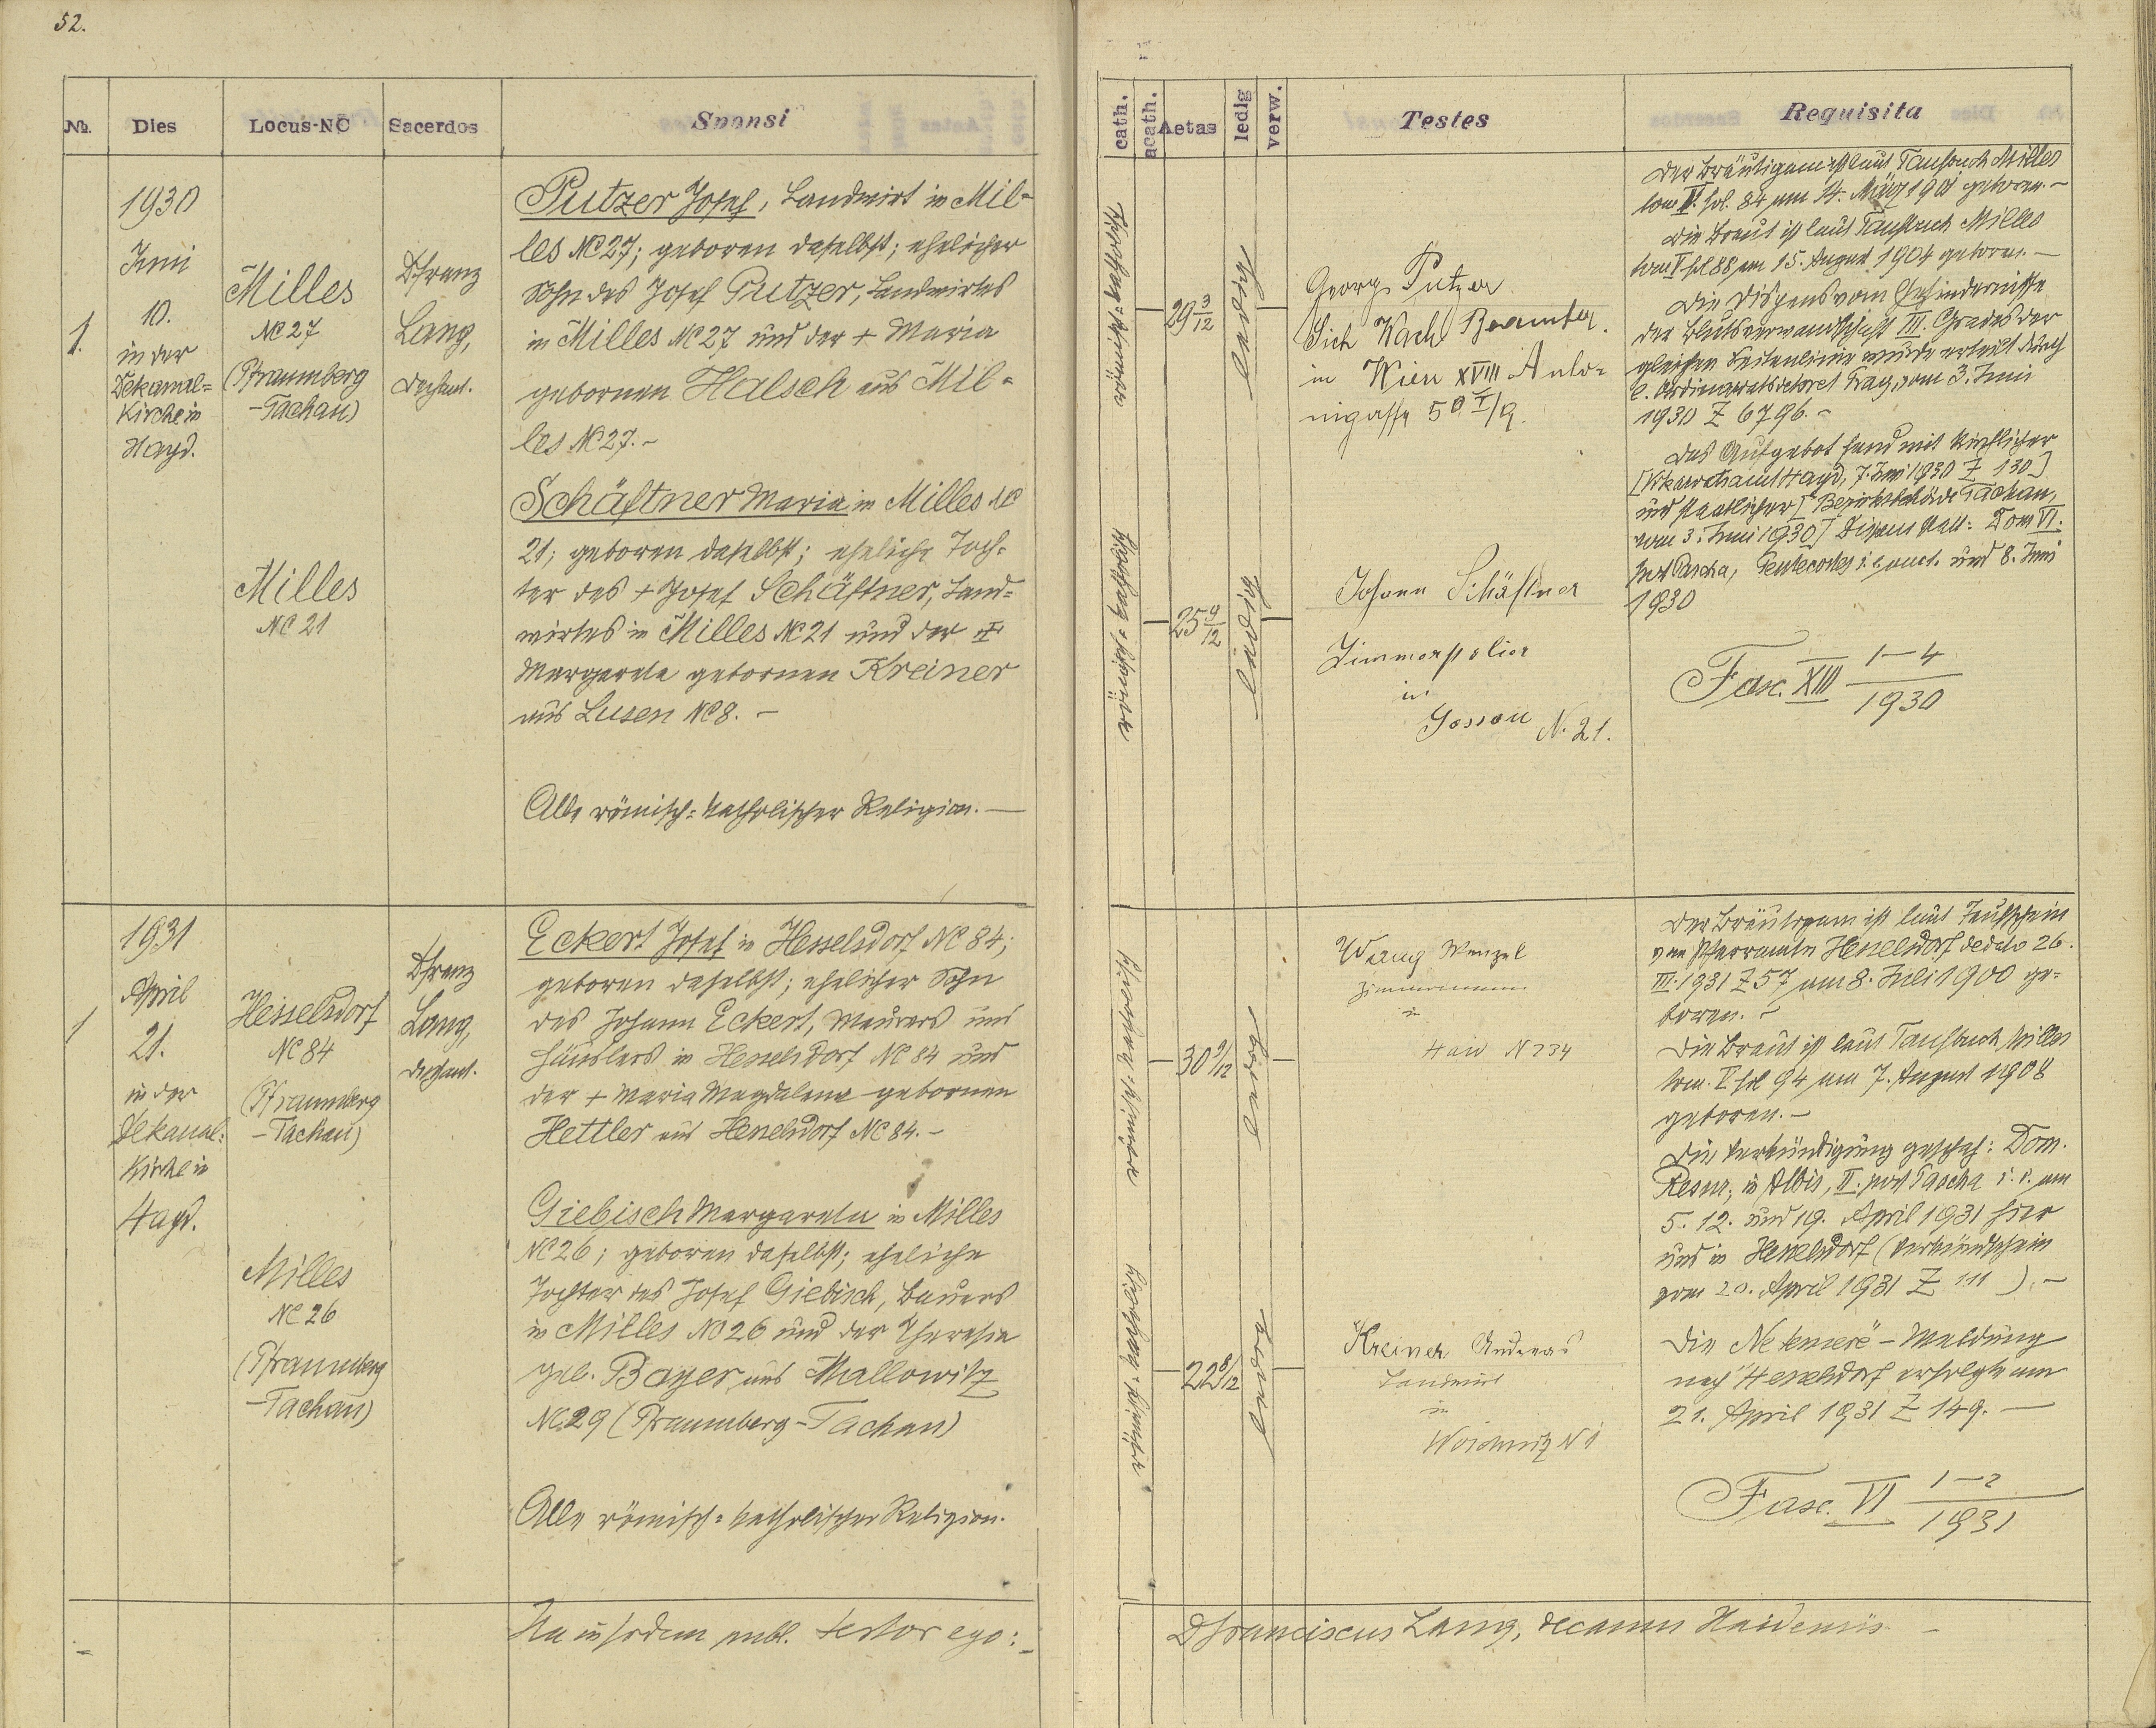 52.
№.
Dies
Locus-NC
Sacerdos
Sponsi
cath.
acath.
Aetas
ledig
verw.
Testes
Requisita
1.
1930
Juni
10.
in der
Dekanal=
Kirche in
Hayd.
Milles
NC 27
(Pfraumberg
-Tachau)
Milles
NC 21
P. Franz
Lang,
Dechant.
Putzer Josef, Landwirt in Mil-
les NC 27; geboren daselbst; ehelicher
Sohn des Josef Putzer, Landwirtes
in Milles NC 27 und der + Maria
gebornen Halsch aus Mil-
les NC 27. -
Schäftner Maria in Milles NC
21; geboren daselbst; eheliche Toch-
ter des + Josef Schäftner, Land-
wirtes in Milles NC 21 und der +
Margareta gebornen Kreiner
aus Lusen NC 8. -
Alle römisch-katholischer Religion. -
katholisch, römisch
katholisch, römisch
29 3/12
25 9/12
ledig
ledig
Georg Putzer
Sich Wach Beamter.
in Wien XVIII Anto-
nigasse 50 I/9.
Johann Schäftner
Zimmerpolier
in
Gossau N. 21.
Der Bräutigam ist laut Taufbuch Milles
tom V. fol. 84 am 14. März 1901 geboren. -
Die Braut ist laut Taufbuch Milles
tom V fol 88 am 15. August 1904 geboren. -
Die Dispens vom Ehehindernisse
der Blutsverwandtschaft III. Grades der
gleichen Seitenlinie wurde erteilt durch
e. Ordinariatsdekret Prag, vom 3. Juni
1930 Z 6796. -
Das Aufgebot fand mit kirchlicher
[Vikariatsamt Hayd, 7. Juni 1930 Z 130]
und staatlicher [Bezirksbehörde Tachau,
vom 3. Juni 1930] Dispens statt: Dom VI.
post Pascha, Pentecostes i. e. und 8. Juni
1930
Fasc. XIII 1-4/1930
1
1931
April
21.
in der
Dekanal-
Kirche in
Hayd.
Hesselsdorf
NC 84
(Pfraumberg
-Tachau)
Milles
NC 26
(Pfraumberg
-Tachau)
P. Franz
Lang,
Dechant.
Eckert Josef in Hesselsdorf NC 84;
geboren daselbst; ehelicher Sohn
des Johann Eckert, Maurers und
Häuslers in Hesselsdorf NC 84 und
der + Maria Magdalena gebornen
Hettler aus Hesselsdorf NC 84. -
Giebisch Margareta in Milles
NC 26; geboren daselbst; eheliche
Tochter des Josef Giebisch, Bauers
in Milles NC 26 und der Theresia
geb. Bayer aus Mallowitz
NC 29 (Pfraumberg-Tachau)
Alle römisch-katholischer Religion.
katholisch, römisch
katholisch, römisch
30 9/12
22 8/12
ledig
ledig
Wang Wenzel
Zimmermann
in
Haid N 234
Kreiner Andreas
Landwirt
in
N 1
Der Bräutigam ist laut Taufschein
vom Pfarramte Hesselsdorf dedato 26.
III. 1931 Z 57 am 8. Juli 1900 ge-
boren. -
Die Braut ist laut Taufbuch Milles
tom. V fol 94 am 7. August 1908
geboren. -
Die Verkündigung geschah: Dom.
Resur., in Albis, II. post Pascha i. e. am
5. 12. und 19. April 1931 hier
und in Hesselsdorf (Verkündschein
vom 20. April 1931 Z 111). -
Die Ne temere - Meldung
nach Hesselsdorf erfolgte am
21. April 1931 Z 149. -
Fasc. VI 1-2/1931
Ita in fidem publ. testor ego:
P. Franciscus Lang, decanus Haidensis -